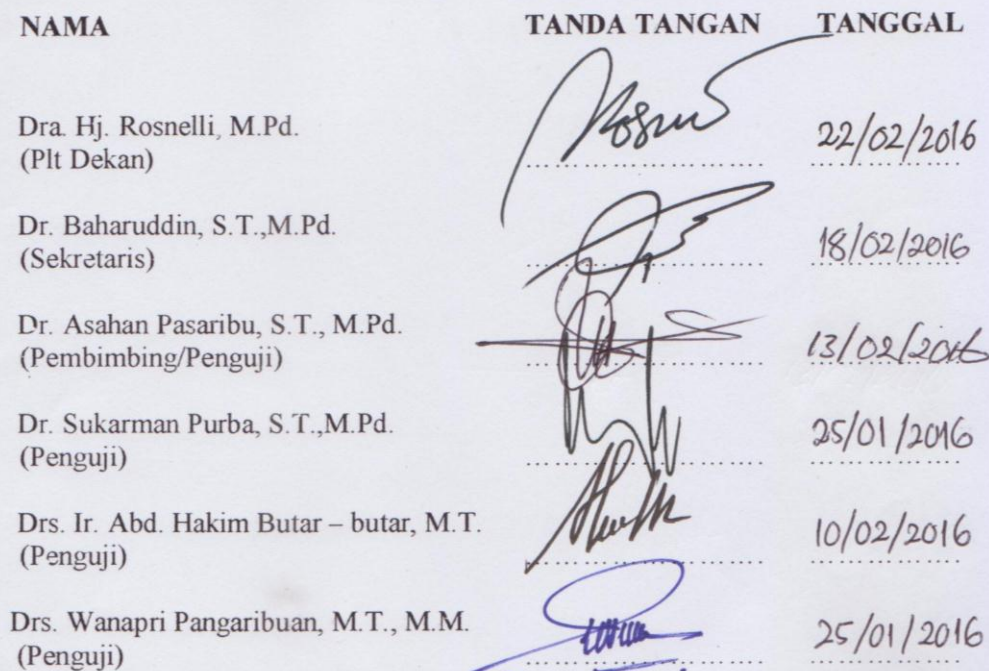 NAMA TANDA TANGAN TANGGAL
Dra. Hj. Rosnelli, M.Pd.
(Plt Dekan) 22/02/2016
Dr. Baharuddin, S.T.,M.Pd.
(Sekretaris) 18/02/2016
Dr. Asahan Pasaribu, S.T., M.Pd.
(Pembimbing/Penguji) 13/02/2016
Dr. Sukarman Purba, S.T.,M.Pd.
(Penguji) 25/01/2016
Drs. Ir. Abd. Hakim Butar – butar, M.T.
(Penguji) 10/02/2016
Drs. Wanapri Pangaribuan, M.T., M.M.
(Penguji) 25/01/2016